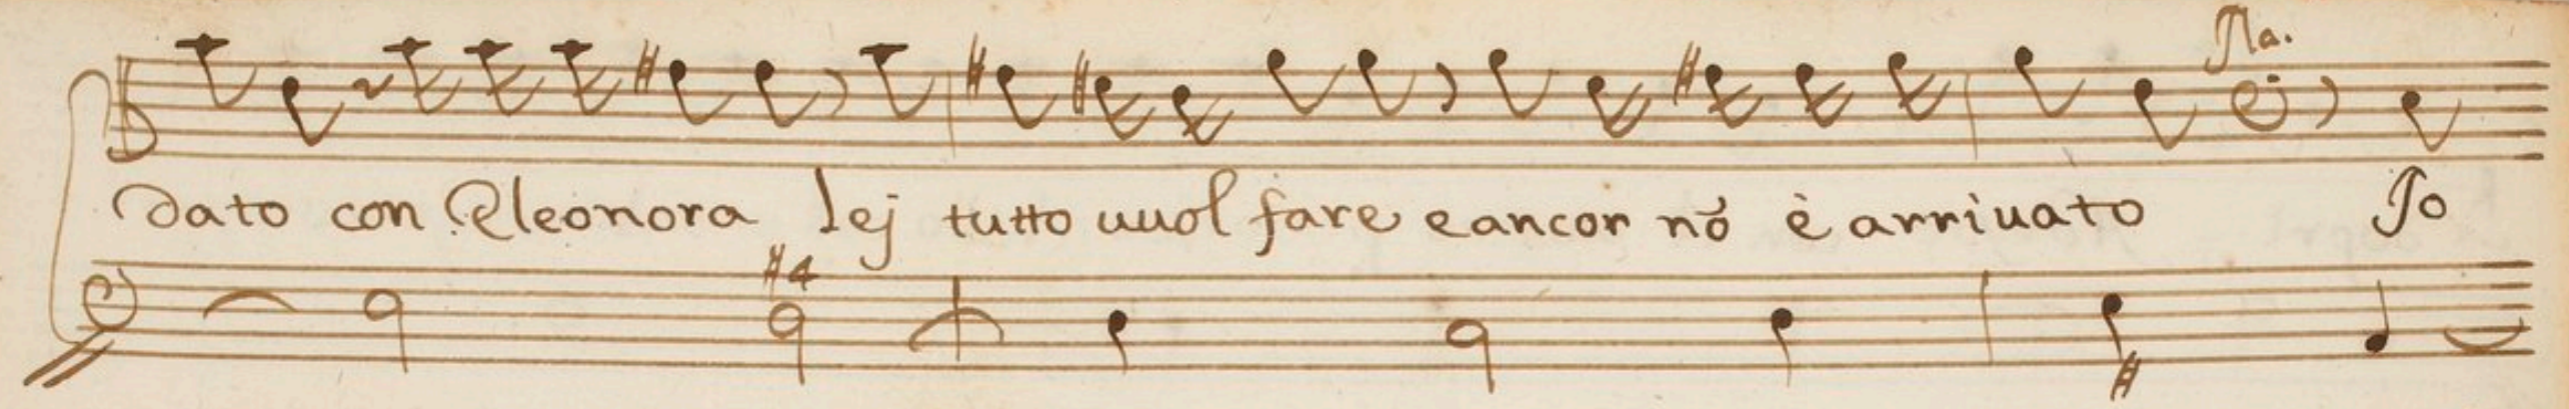 Na.
dato con Eleonora lej tutto uuol fare e ancor nõ è arriuato Io
#4
#